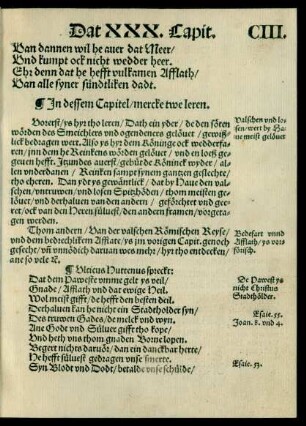 Dat XXX. Capit. CIII.
Van dannen wil he auer dat Meer/
Vnd kumpt ock nicht wedder heer.
Eh: denn dat he hefft vulkamen Afflath/
Van alle syner sündtliken dadt.
¶ In dessem Capitel/ mercke twe leren.
Vorerst/ ys hyr tho leren/ Dath ein yder/ de den söten
wörden des Smeichlers vnd ogendeners gelöuet/ gewiß-
lick bedragen wert. Also ys hyr dem Köninge ock wedderfa-
ren/ nu he Reinken wörden gelöuet/ vnd en loß ge-
geuen hefft. Itzundes auerst/ gebüdt de Köninck yder/ al-
len vnderdanen/ Reinken sampt synem gantzen geslechte/
tho ehren. Dan ydt ys gewanntlick/ dat by Haue den val-
schen/ vntruwen/ vnd losen Spitzhöden/ thom meisten ge-
löuet/ vnd derhaluen van den andern/ geförchtet vnd ge-
eret/ ock van den Heren süluest/ den andern framen/ vörge-
tagen werden.
Valschen vnd lo-
sen/ wert by Ha-
ue meist gelöuet
Thom andern/ Van der valschen Römischen Reyse/
vnd dem bedrechliken Afflate/ ys im vorigen Capit. genoch
gesecht/ vnnödich daruan wes mehr/ hyr tho entdecken/
ane so vele
Bedefart vnnd
Afflath/ ys vor-
¶ Vlricus Huttenus spreckt:
Dat dem Paweste vmme gelt ys veil/
Gnade/ Afflath vnd dat ewige Heil.
Wol meist gifft/ de hefft den besten deil.
Derhaluen kan he nicht ein Stadtholder syn/
Des truwen Gades/ de melck vnd wyn.
Ane Godt vnd Süluer gifft tho kope/
Vnd heth vns thom gnaden Borne lopen.
Begert nichts daruör/ dan ein danckbar herte/
He hefft sülvest gedragen vnse smerte.
Syn Blodt vnd Dodt/ betalde vnse schülde/
De Pawest ys
nicht Christus
Stadtholder.
Esaie. 55.
Joan. 8. vnd 4.
Esaie. 53.